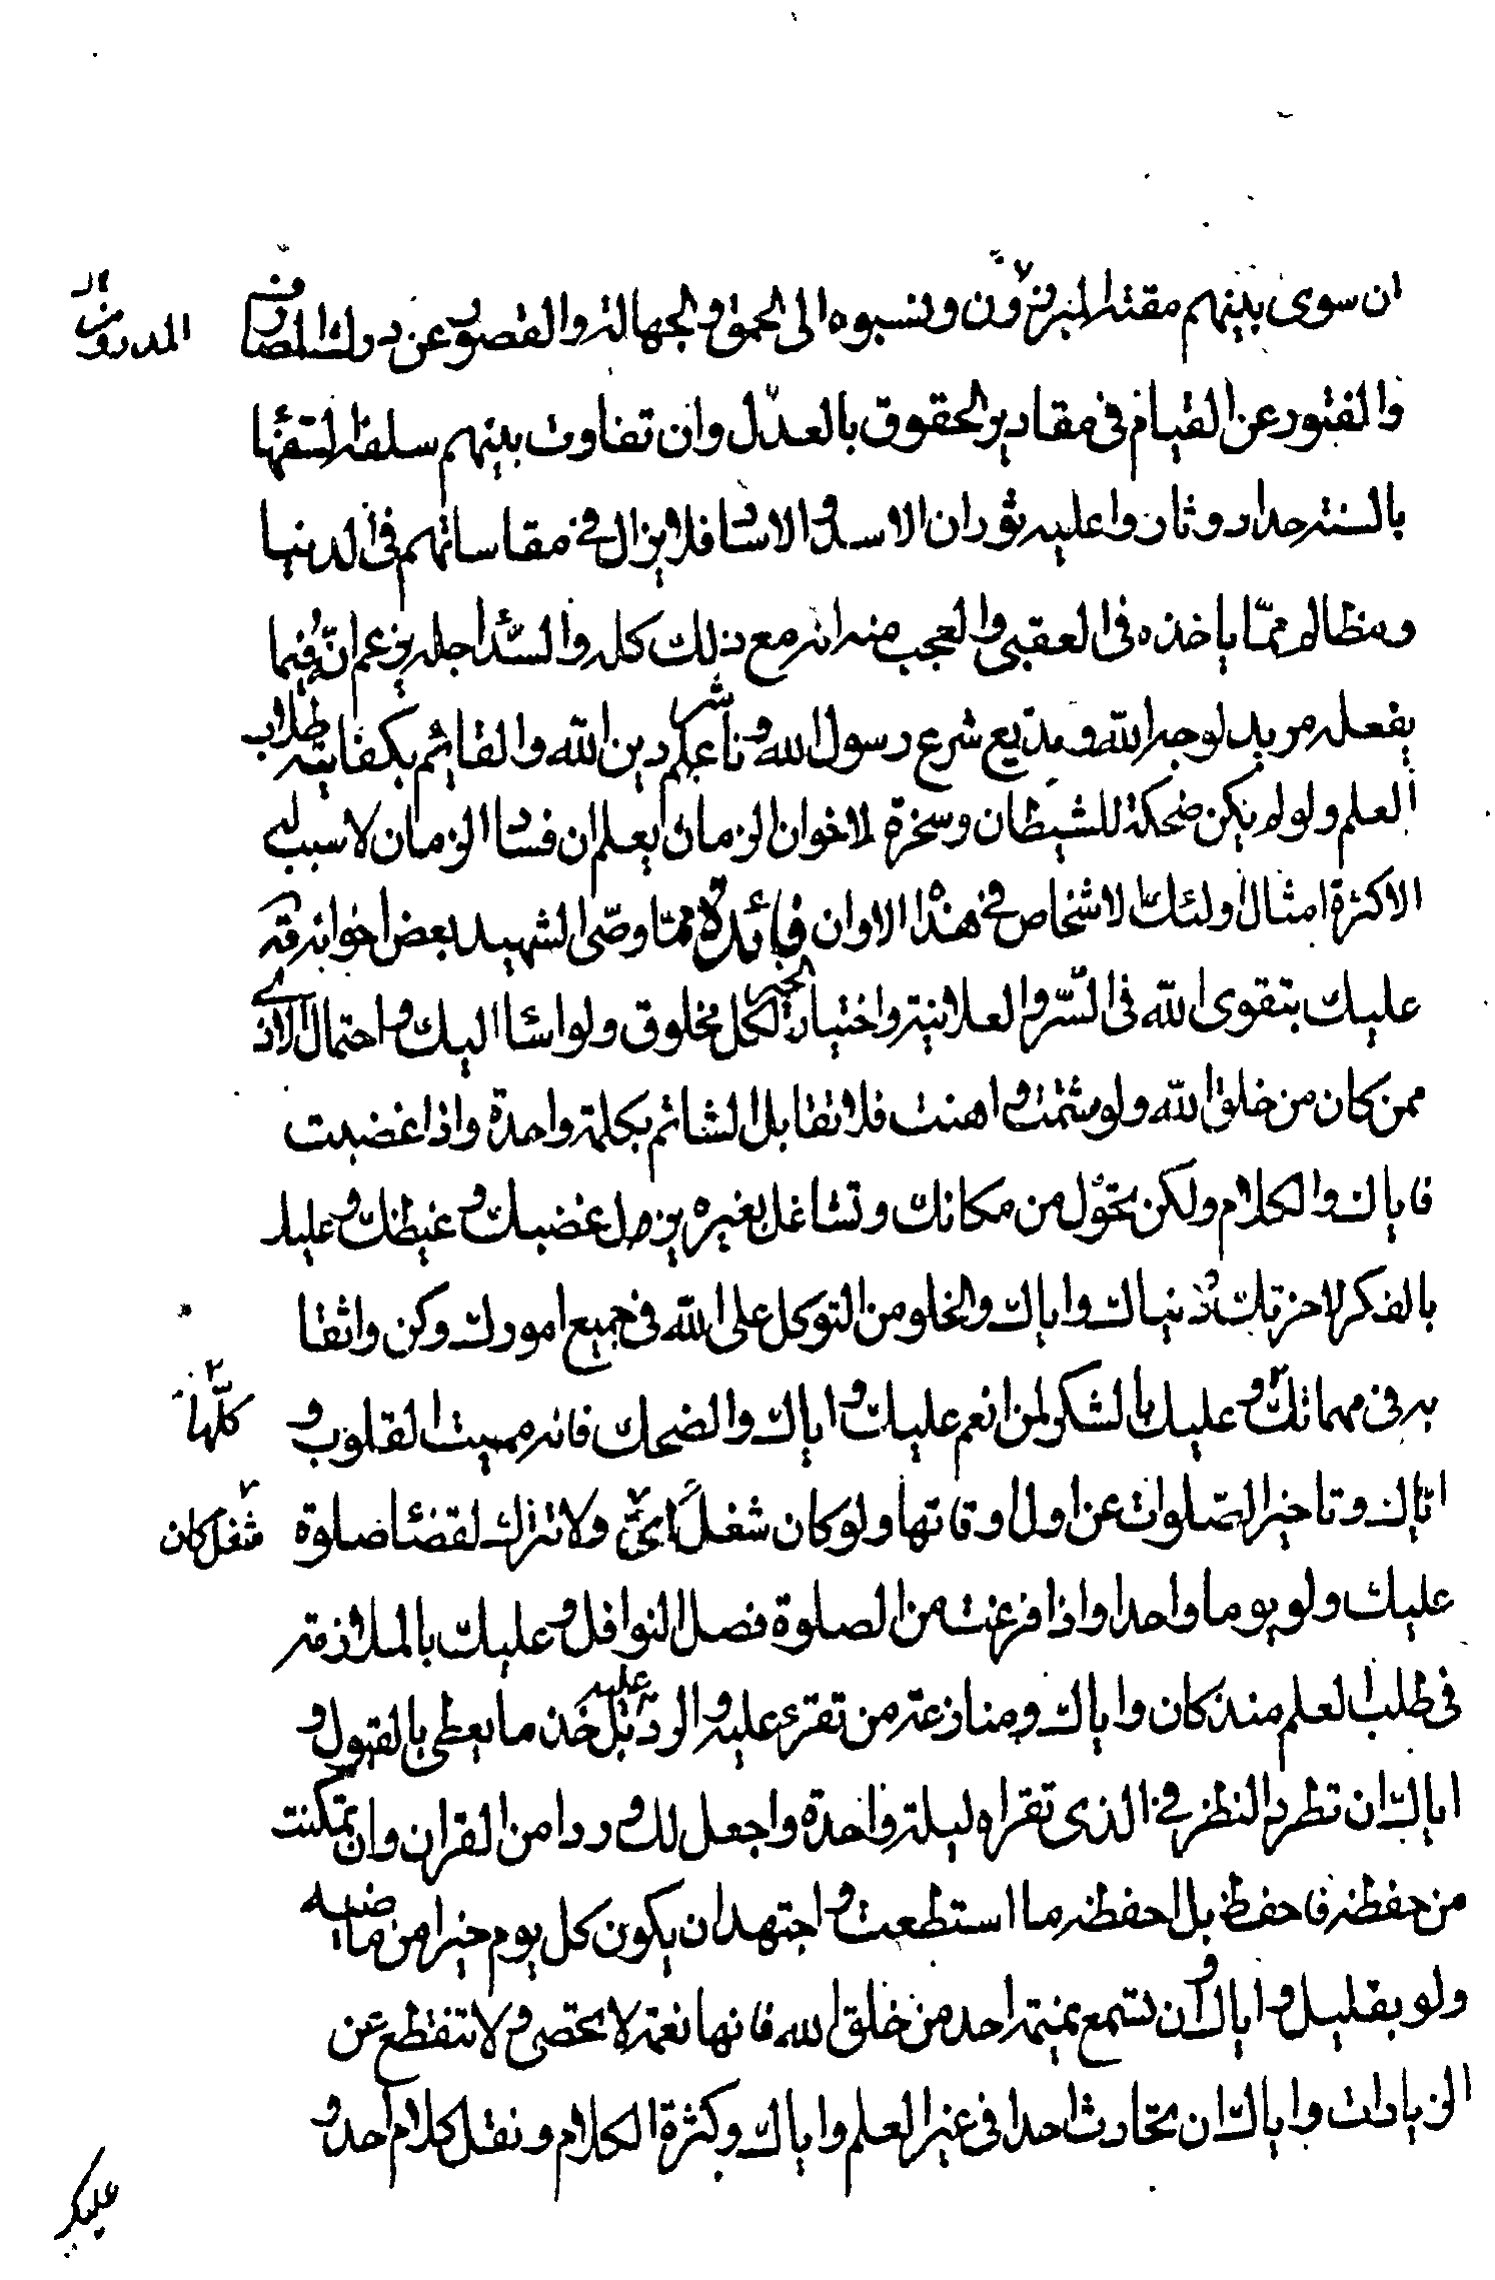 ان سوى بينهم مقته المبرزون ونسبوه الى الحمق والجهالة والقصور عن درك المصارف
والفتور عن القيام في مقادير الحقوق بالعدل وان تفاوت بينهم سلقه السفهاء
بالسنة حداد وثاروا عليه ثوران الاساود والاساد فلا يزال في مقاساتهم في الدنيا
ومظالم مما ياخذه في العقبى والعجب منه انه مع ذلك كله والداء جله يزعم انه فيما
يفعله مريد لوجه الله ومذيع شرع رسول الله وناشر علم دين الله والقائم بكفاية طلاب
العلم ولو لم يكن ضحكة للشيطان وسخرة لاخوان الزمان يعلم ان فساد الزمان لا سبب له
الا كثرة امثال اولئك الاشخاص في هذا الاوان فائدة مما وصى الشهيد بعض اخوانه قه
عليك بتقوى الله في السر والعلانية واختيار الخير لكل مخلوق ولو اساء اليك واحتمال الاذى
ممن كان من خلق الله ولو شتمت واهنت فلا تقابل الشاتم بكلمة واحدة واذا غضبت
فاياك والكلام ولكن تحول من مكانك وتشاغل بغيره يزول غضبك وغيظك وعليك
بالفكر لاخرتك ودنياك واياك والخلو من التوكل على الله في جميع امورك وكن واثقا
به في مهماتك وعليك بالشكر لمن انعم عليك واياك والضحك فانه مميت القلوب و
اياك وتاخير الصلوات عن اول اوقاتها ولو كان شغلك اي شيء ولا تترك لقضاء صلوة
عليك ولو يوما واحدا واذا فرغت من الصلوة فصل النوافل وعليك بالملازمة
في طلب العلم منذ كان واياك ومنازعة من تقرئ عليه والرد عليه بل خذ ما يعطى بالقبول و
اياك ان تطرد النظر في الذي تقراه ليلة واحدة واجعل لك وردا من القران وان تمكنت
من حفظه فاحفظ بل احفظه ما استطعت واجتهد ان يكون كل يوم خيرا من ماضيه
ولو بقليل واياك وان تستمع نميمة احد من خلق الله فانها نغمة لا تحصى ولا تنقطع عن
الزيادات واياك ان تحادث احدا في غير العلم واياك وكثرة الكلام ونقل كلام احد و
كلها
شغل كان
عليك